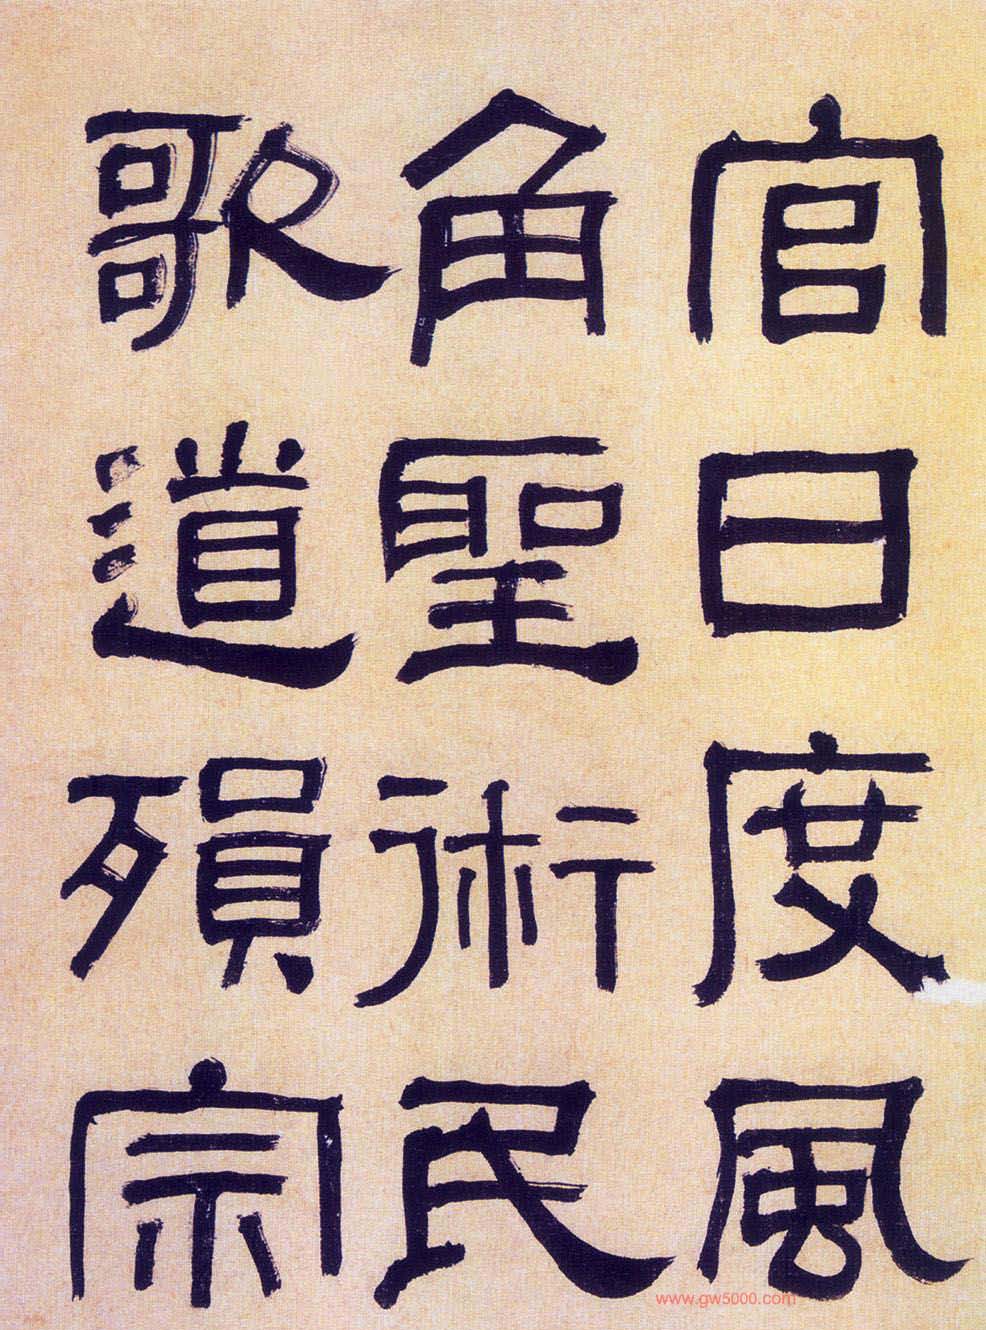 官日度風
角聖術民
歌道殞宗
www.gw5000.com